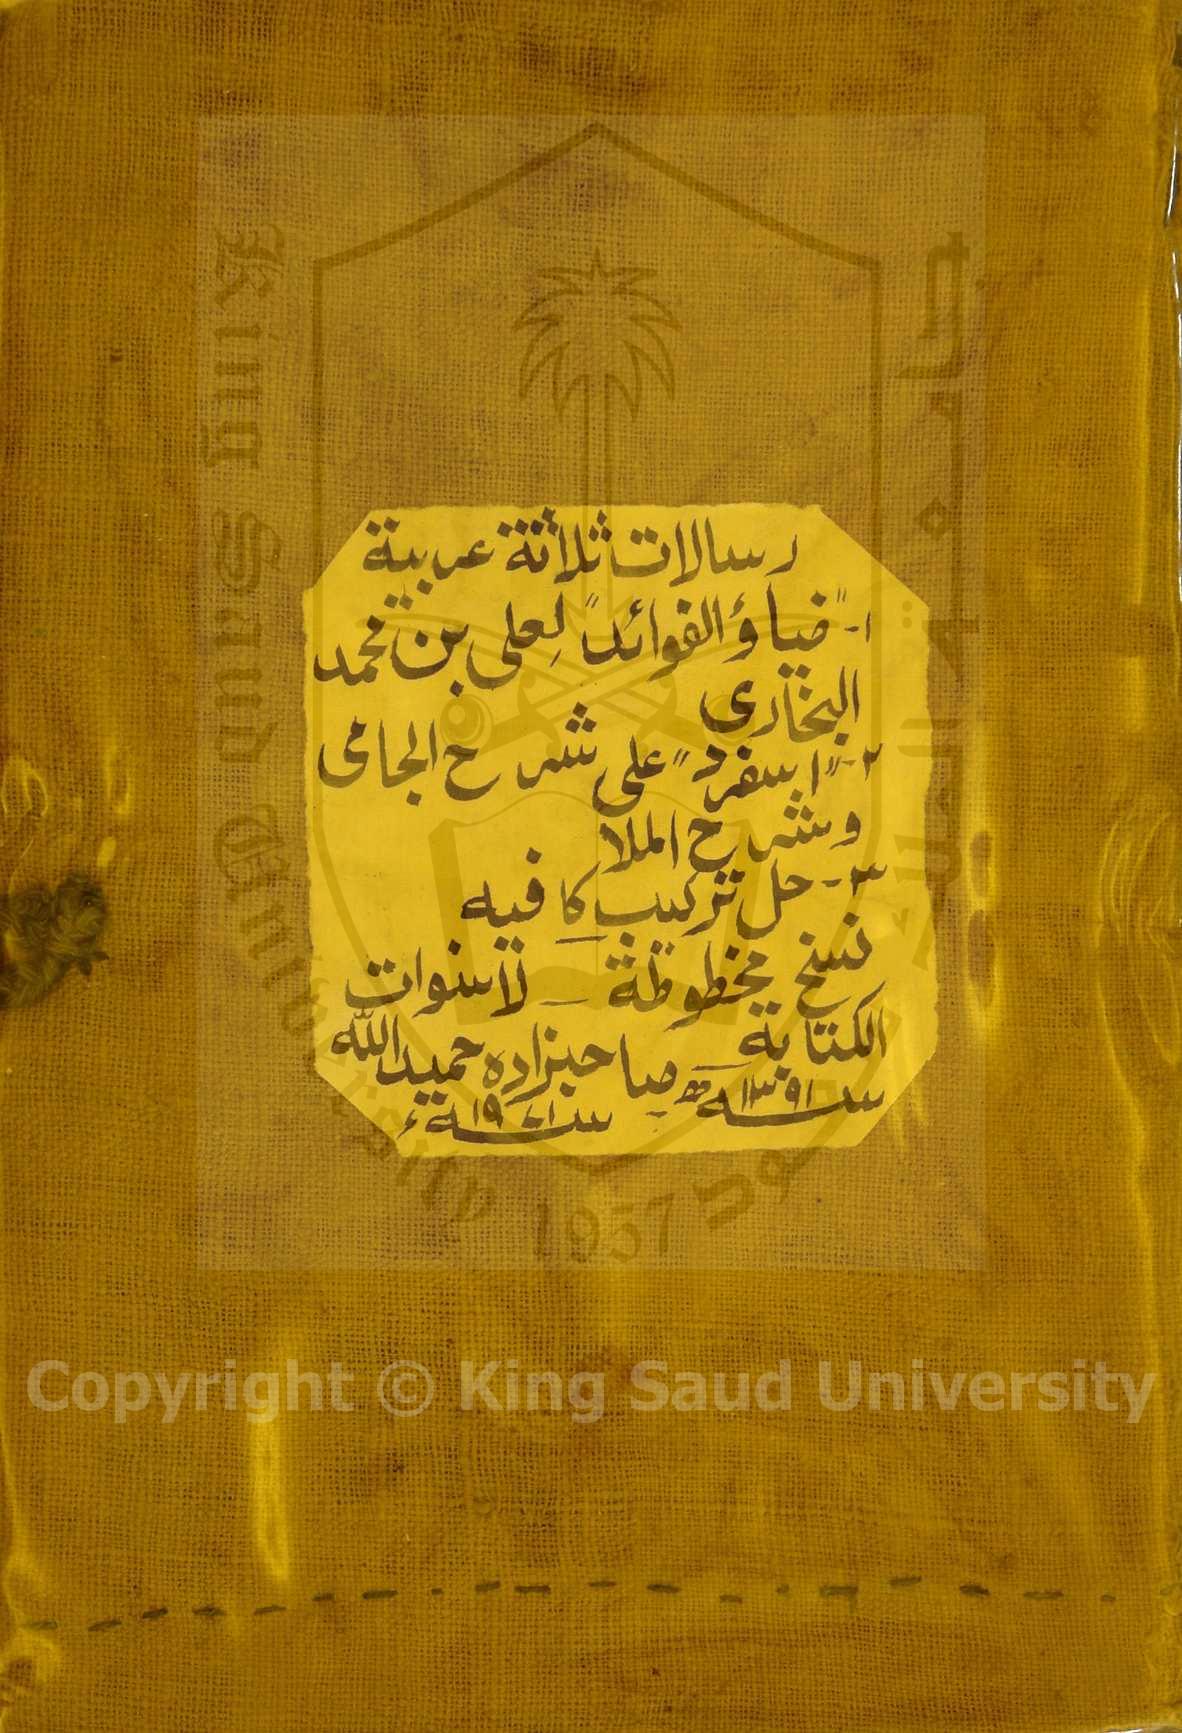 رسالات ثلاثة عربية
١- "ضياؤ الفوائد" لِعلى بن محمد
البخارى
٢- "اسفرد" على شرح الجامى
وشرح الملا
٣- حل تركيب كافيه
نسخ مخطوطة - لا سنوات
الكتابة - صاحبزاده حميد الله
سنة ١٣٩١ھ
سنة ١٩٧١ء
King Saud University
1957
Copyright © King Saud University